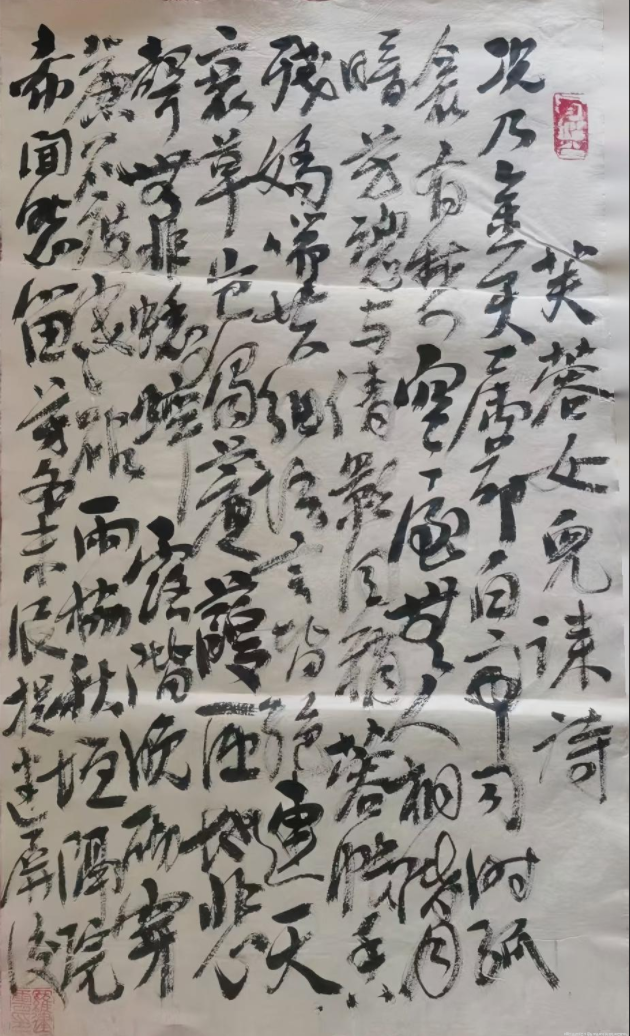 芙蓉女兒誄詩
况乃金天属节白帝司时孤
衾有梦空室無人桐階月
暗芳魂与倩影同銷蓉帳香
残嬌喘共細言皆絶連天
衰草豈獨蒹葭匝地悲
聲無非蟋蟀露階晚砌穿
簾不度寒砧雨荔秋垣隔院
希聞怨笛芳名未泯捉迷屏後